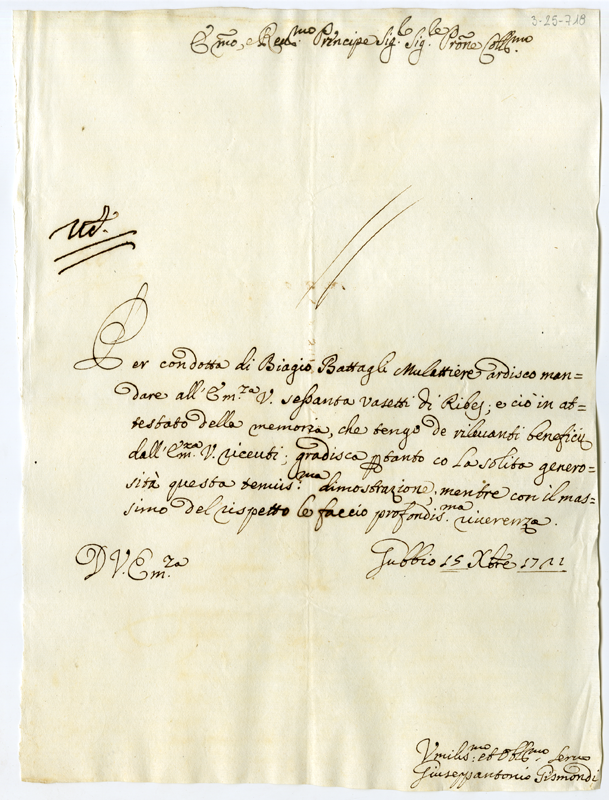 3-25-718
Em̃o, e Reu.mo Prñcipe Sig.le Sig.le Prõne Coll.mo
Ud.
Per condotta di Biagio Battagli Mulattiere ardisco man=
dare all'Em.za V. sessanta vasetti di Ribes; e ciò in at=
testato della memoria, che tengo de rileuanti beneficij
dall'Em.za V. riceuti; gradisca ptanto co La solita genero=
sità questa tenuis.ma dimostrazione, mentre con il mas=
simo del rispetto le faccio profondis.ma riuerenza.
D V. Em.za
Gubbio 15 Xbre 1711
Vmilis.mo et Obl.mo Seruo
Giuseppantonio Gismondi